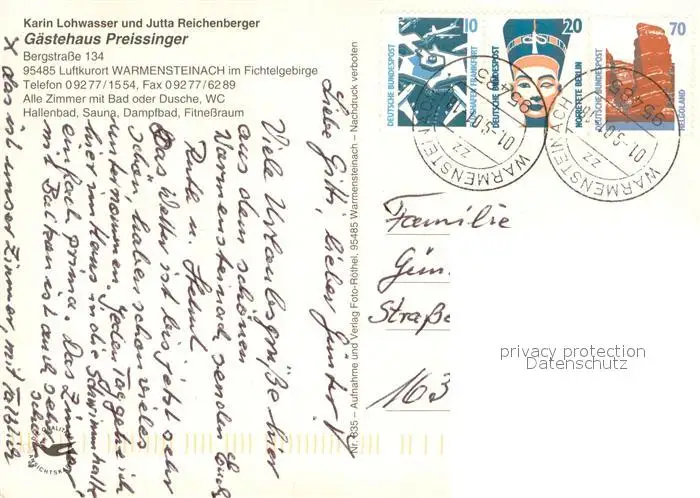 Karin Lohwasser und Jutta Reichenberger
Gästehaus Preissinger
Bergstraße 134
95485 Luftkurort WARMENSTEINACH im Fichtelgebirge
Telefon 0 92 77 / 15 54, Fax 0 92 77 / 62 89
Alle Zimmer mit Bad oder Dusche, WC
Hallenbad, Sauna, Dampfbad, Fitneßraum
Liebe Gitti, lieber Günter!
Viele Urlaubsgrüße hier
aus dem schönen
Warmensteinach senden Euch
Ruth u. Helmut
Das Wetter ist bis jetzt sehr
schön, haben schon vieles
unternommen. Jeden Tag gehe ich
hier im Haus in die Schwimmhalle
einfach prima. Das Zimmer
mit Balkon ist auch sehr
schön
x das ist unser Zimmer, mit
Nr. 635 – Aufnahme und Verlag Foto-Röthel, 95485 Warmensteinach – Nachdruck verboten
10
DEUTSCHE BUNDESPOST
FLUGHAFEN FRANKFURT
20
DEUTSCHE BUNDESPOST
NOFRETETE BERLIN
70
DEUTSCHE BUNDESPOST
HELGOLAND
WARMENSTEINACH
95485
WARMENSTEINACH
95485
Familie
Gün
Straße
163
privacy protection
Datenschutz